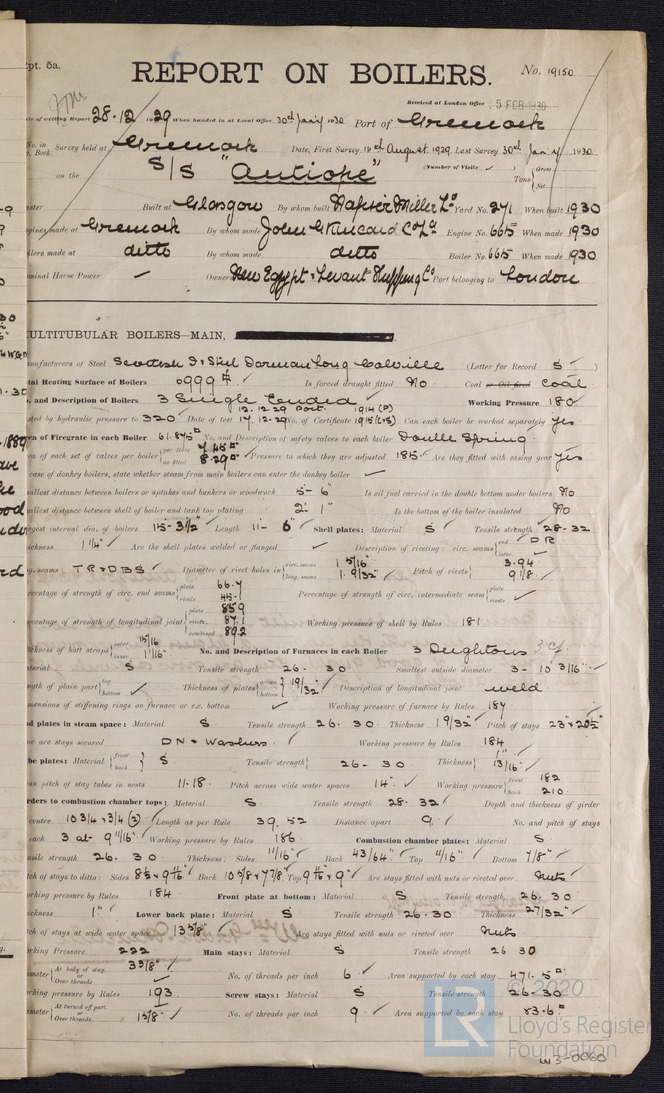 pt. 5a.
REPORT ON BOILERS.
No. 19150
Received at London Office 5 FEB 1930
Date of writing Report 28.12 1929 When handed in at Local Office 30th Jan'y 1930 Port of Greenock
No. in Survey held at Greenock Date, First Survey 14th August 1929 Last Survey 30th Jan'y 1930
Book.
on the S/S "Antiope" (Number of Visits) Tons Gross Net
Built at Glasgow By whom built Napier & Miller Ld Yard No. 271 When built 1930
Engines made at Greenock By whom made John G Kincaid & Co Ld Engine No. 665 When made 1930
Boilers made at ditto By whom made ditto Boiler No. 665 When made 1930
Nominal Horse Power Owners New Egypt & Levant Shipping Co Port belonging to London
MULTITUBULAR BOILERS—MAIN,
Manufacturers of Steel Scottish I & Steel Dorman Long Colville (Letter for Record S)
Total Heating Surface of Boilers 6999 Is forced draught fitted No Coal or Oil fired Coal
No. and Description of Boilers 3 Single Ended Working Pressure 180
Tested by hydraulic pressure to 320 Date of test 12.12.29 Port. 17.12.29 No. of Certificate 1914 (P) 1915 (C+S) Can each boiler be worked separately Yes
Area of Firegrate in each Boiler 61.875 No. and Description of safety valves to each boiler Double Spring
Area of each set of valves per boiler per Rule 7.45 as fitted 8.29 Pressure to which they are adjusted 185 Are they fitted with easing gear Yes
In case of donkey boilers, state whether steam from main boilers can enter the donkey boiler
Smallest distance between boilers or uptakes and bunkers or woodwork 5'-6" Is oil fuel carried in the double bottom under boilers No
Smallest distance between shell of boiler and tank top plating 2'-1" Is the bottom of the boiler insulated No
Largest internal dia. of boilers 15'-3 1/2" Length 11-6" Shell plates: Material S Tensile strength 28-32
Thickness 1 1/4" Are the shell plates welded or flanged Description of riveting: circ. seams end DR inter.
long. seams TR & DBS Diameter of rivet holes in circ. seams 1 5/16" long. seams 1 9/32" Pitch of rivets 3.94 9 1/8
Percentage of strength of circ. end seams plate 66.7 rivets 45.1 Percentage of strength of circ. intermediate seam plate rivets
Percentage of strength of longitudinal joint plate 85.9 rivets 87.1 combined 89.2 Working pressure of shell by Rules 181
Thickness of butt straps outer 15/16 inner 1 1/16" No. and Description of Furnaces in each Boiler 3 Deightons 3 cf.
Material S Tensile strength 26.30 Smallest outside diameter 3-10 3/16"
Length of plain part top bottom Thickness of plates bottom 19/32" Description of longitudinal joint weld
Dimensions of stiffening rings on furnace or c.c. bottom Working pressure of furnace by Rules 187
End plates in steam space: Material S Tensile strength 26.30 Thickness 1 9/32" Pitch of stays 23" x 20 1/2"
How are stays secured DN & Washers Working pressure by Rules 184
Tube plates: Material front back S Tensile strength 26-30 Thickness 1" 13/16"
Mean pitch of stay tubes in nests 11.18 Pitch across wide water spaces 14" Working pressure front 182 back 210
Girders to combustion chamber tops: Material S Tensile strength 28.32 Depth and thickness of girder
at centre 10 3/4 x 3/4 (2) Length as per Rule 39.52 Distance apart 9 No. and pitch of stays
in each 3 at 9 11/16" Working pressure by Rules 186 Combustion chamber plates: Material S
Tensile strength 26.30 Thickness: Sides 11/16" Back 43/64" Top 11/16" Bottom 7/8"
Pitch of stays to ditto: Sides Back 10 5/8 x 7 7/8 Top Are stays fitted with nuts or riveted over Nuts
Working pressure by Rules 184 Front plate at bottom: Material S Tensile strength 26.30
Thickness 1" Lower back plate: Material S Tensile strength 26.30 Thickness 27/32"
Pitch of stays at wide water space 13 5/8" Are stays fitted with nuts or riveted over Nuts
Working Pressure 222 Main stays: Material S Tensile strength 26 30
Diameter At body of stay, or Over threads 3 3/8" No. of threads per inch 6 Area supported by each stay 471.5
Working pressure by Rules 193 Screw stays: Material S Tensile strength 26-30
Diameter At turned off part, or Over threads 1 5/8" No. of threads per inch 9 Area supported by each stay 83.6
© 2020
LR
Lloyd's Register
Foundation
W3-0060